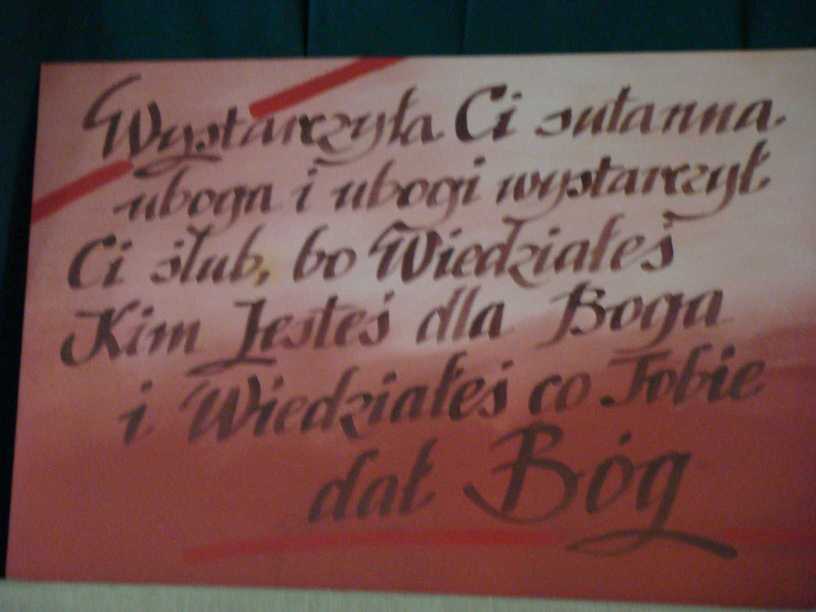 Wystarczyła Ci sutanna
uboga i ubogi wystarczył
Ci ślub, bo Wiedziałeś
Kim Jesteś dla Boga
i Wiedziałeś co Tobie
dał Bóg